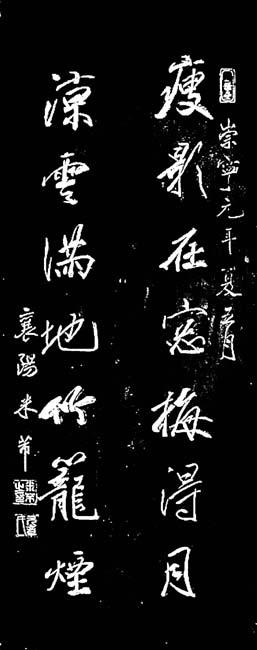 崇寧元年夏五月
瘦影在窓梅得月
涼雲满地竹籠煙
襄陽米芾